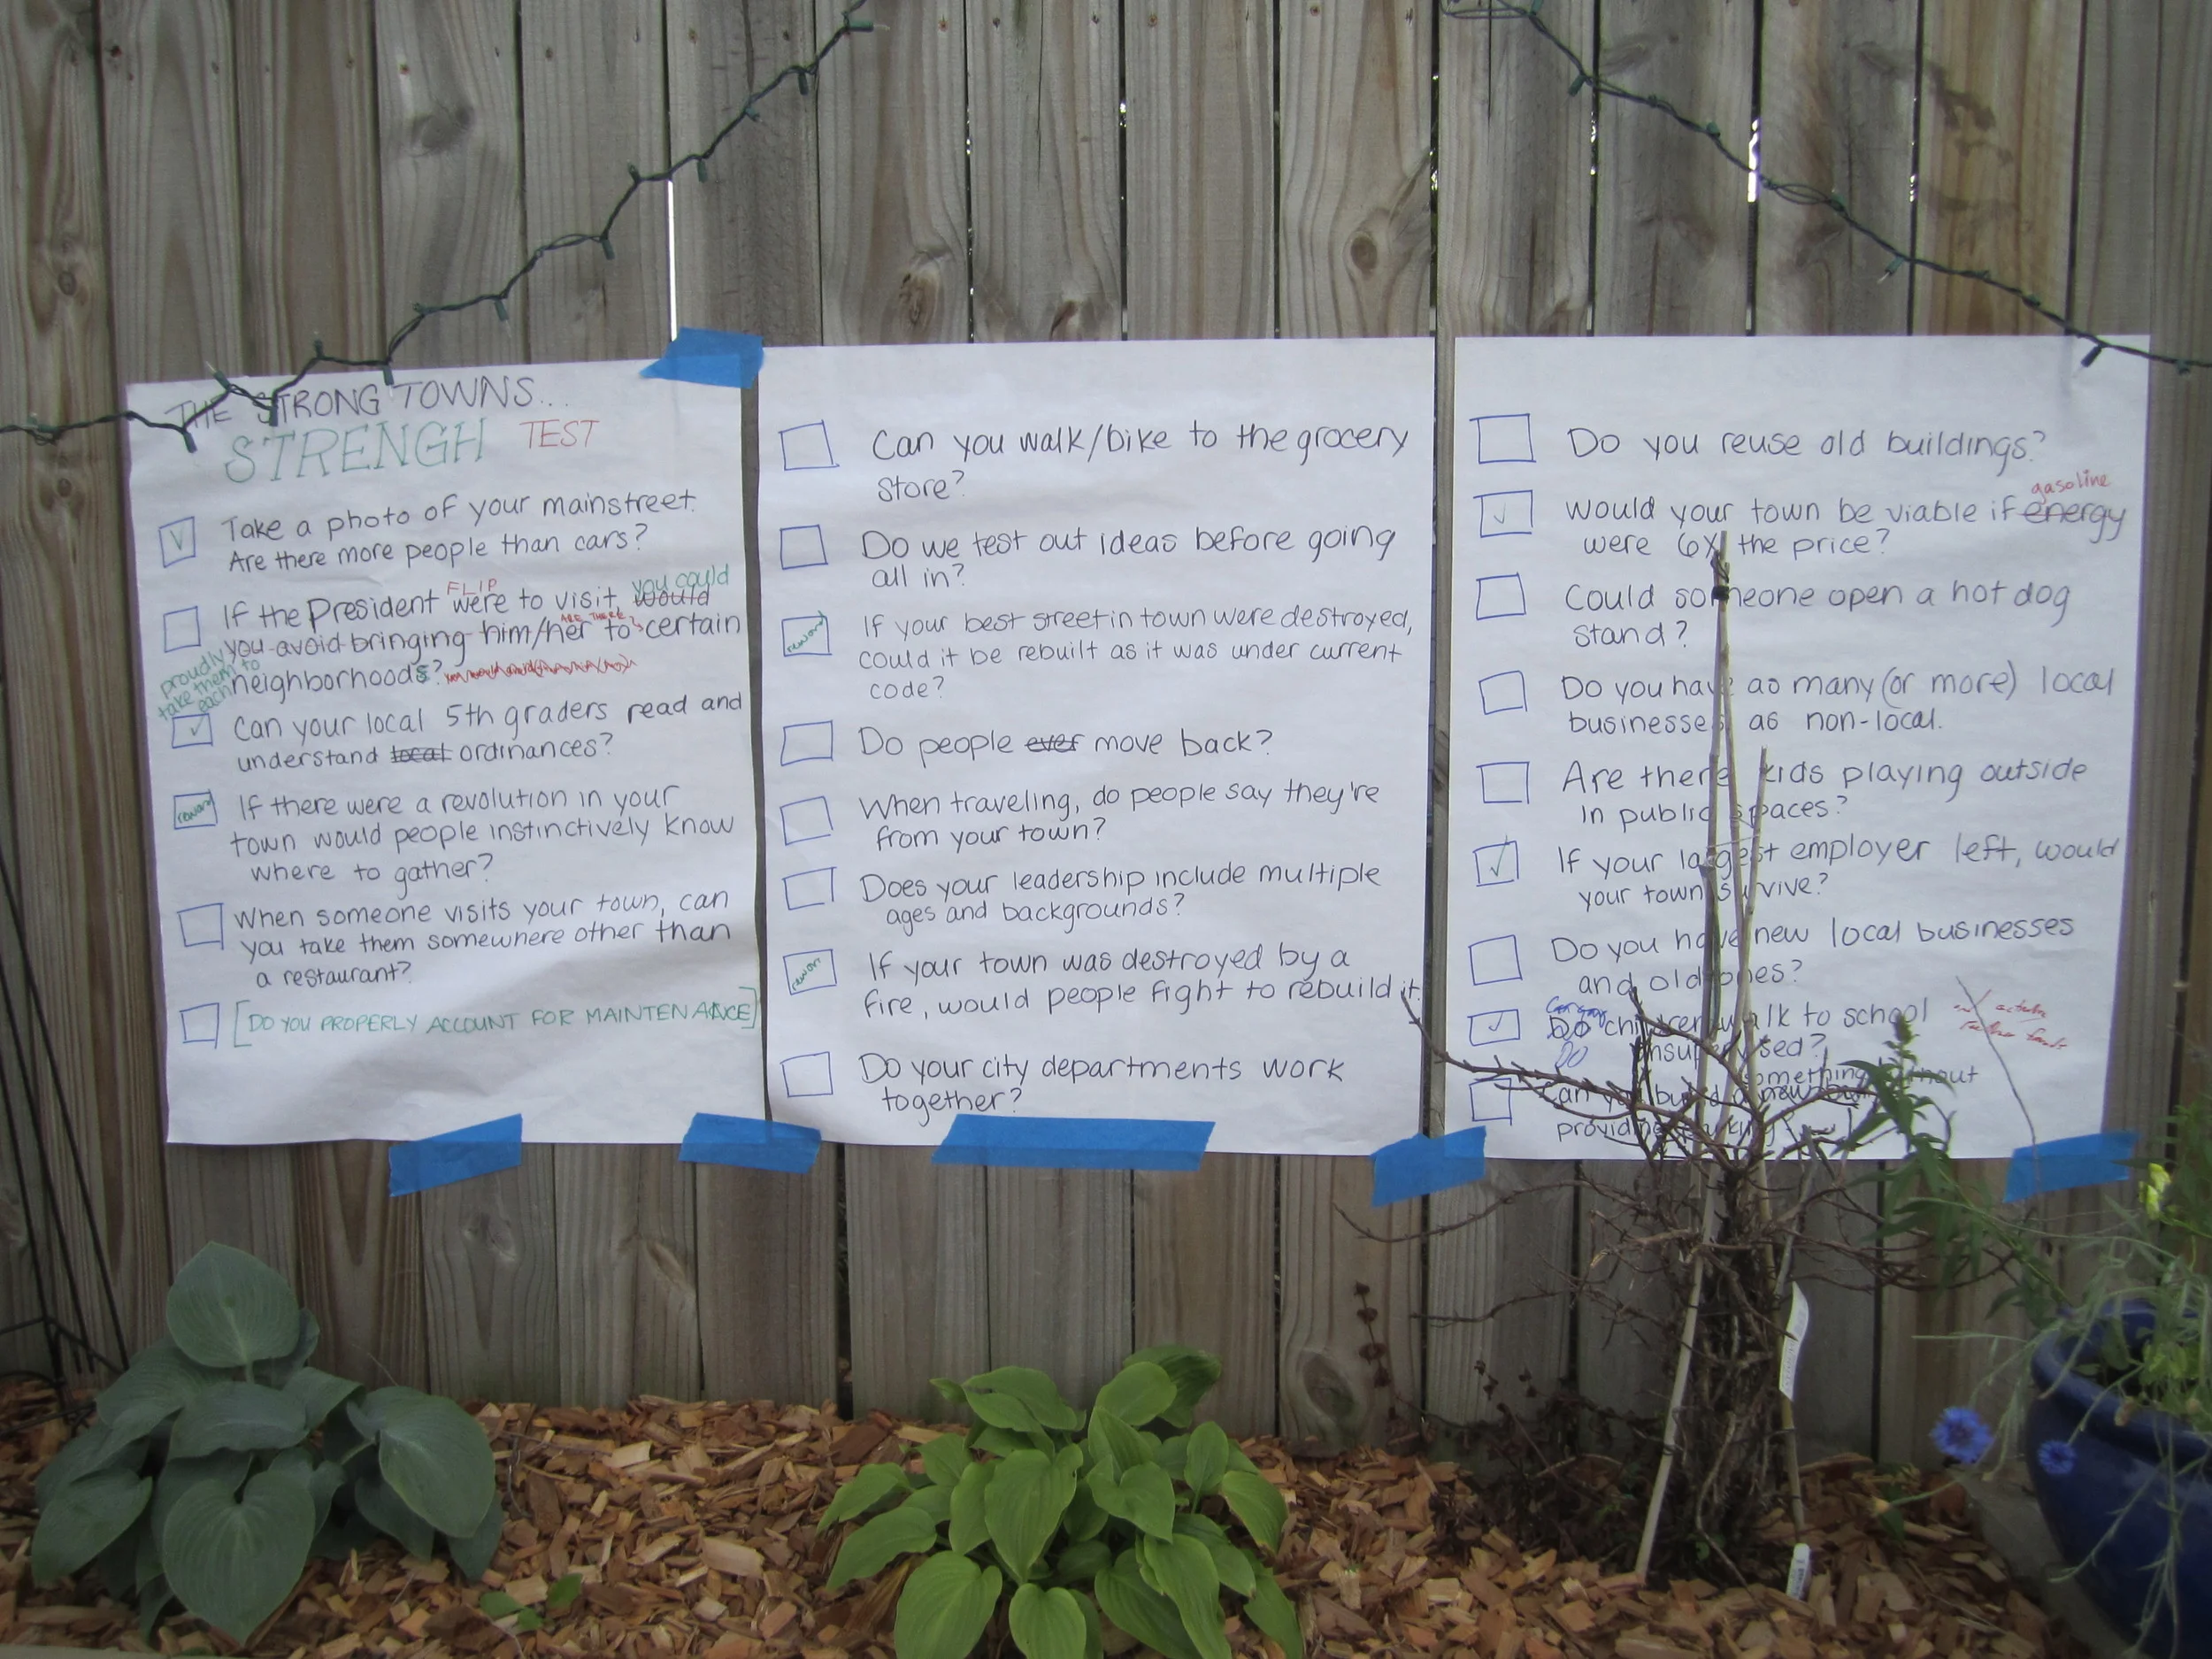 THE STRONG TOWNS...
STRENGH TEST
Take a photo of your mainstreet.
Are there more people than cars?
FLIP
you could
If the President were to visit, would
ARE THERE
you avoid bringing him/her to certain
proudly
take them to
each
neighborhoods?
Can your local 5th graders read and
understand local ordinances?
reword
If there were a revolution in your
town would people instinctively know
where to gather?
When someone visits your town, can
you take them somewhere other than
a restaurant?
[DO YOU PROPERLY ACCOUNT FOR MAINTENANCE]
Can you walk/bike to the grocery
store?
Do we test out ideas before going
all in?
reword
If your best street in town were destroyed,
could it be rebuilt as it was under current
code?
Do people ever move back?
When traveling, do people say they're
from your town?
Does your leadership include multiple
ages and backgrounds?
If your town was destroyed by a
fire, would people fight to rebuild it.
Do your city departments work
together?
Do you reuse old buildings?
gasoline
Would your town be viable if energy
were 6X the price?
Could someone open a hot dog
stand?
Do you have as many (or more) local
businesses as non-local.
Are there kids playing outside
in public spaces?
If your largest employer left, would
your town survive?
Do you have new local businesses
and old ones?
Do children walk to school
DO
unsupervised?
something without
Can you build a new
providing parking